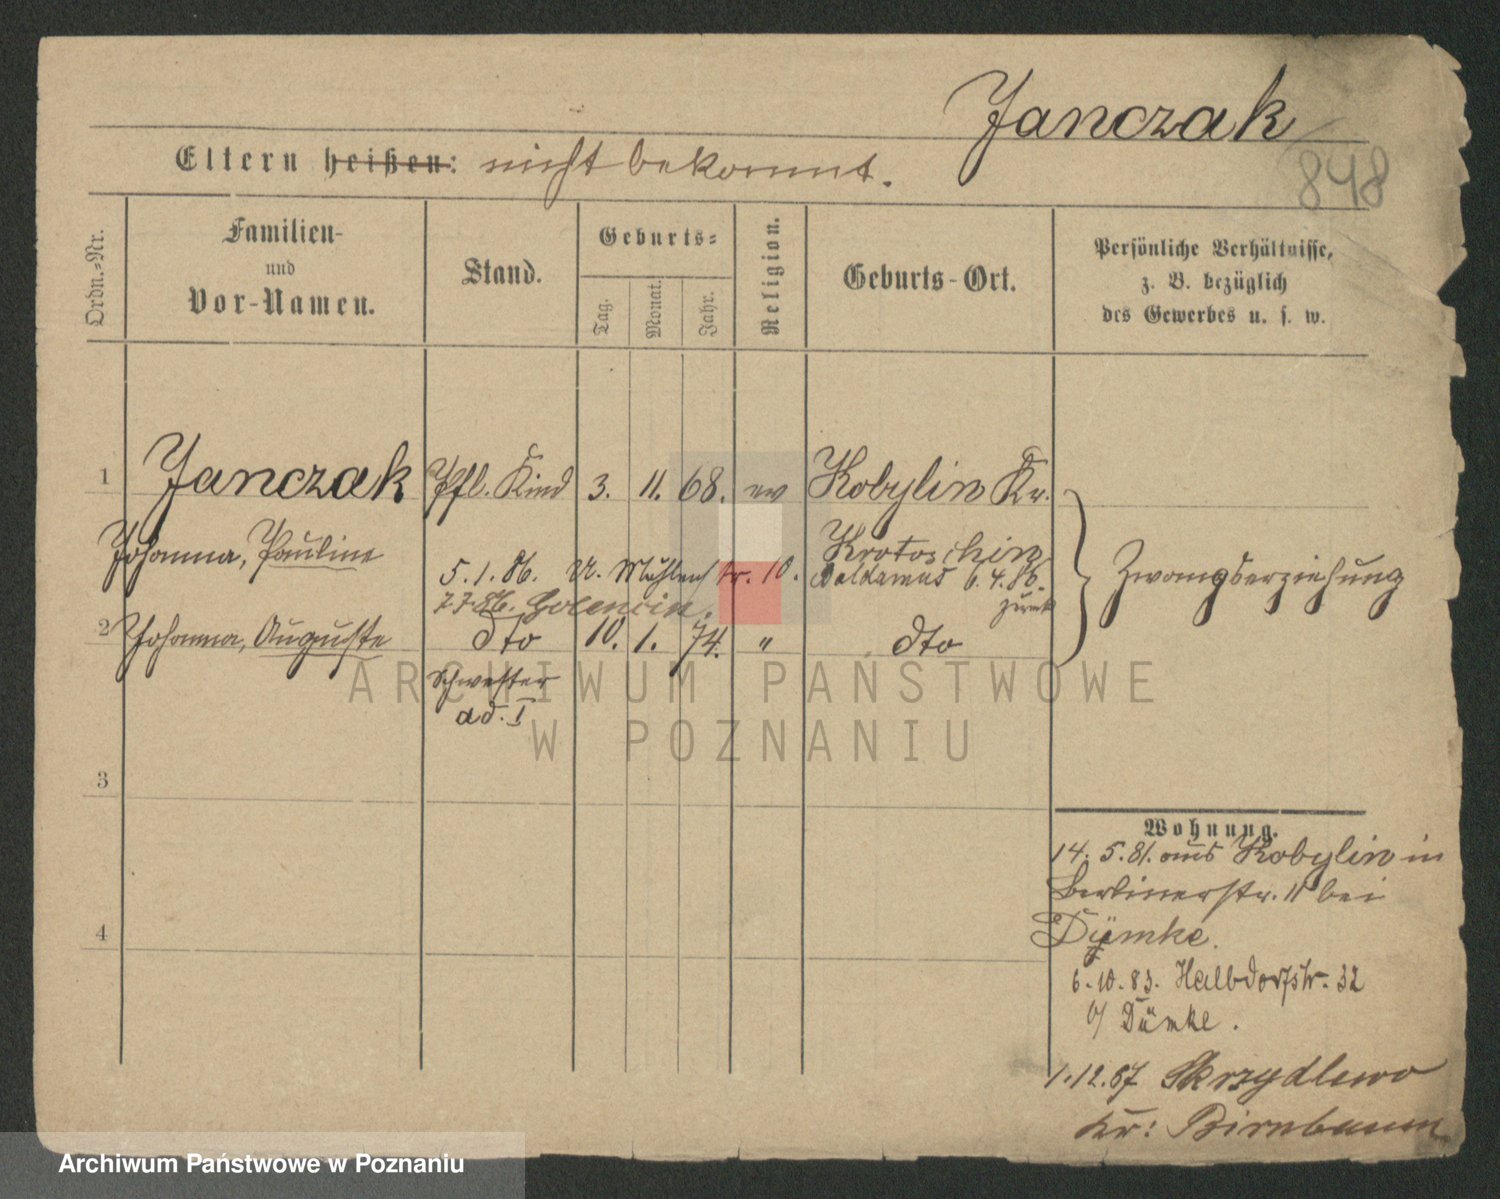 Janczak
848
Eltern heißen: nicht bekannt.
Ordn.-Nr.
Familien-
und
Vor-Namen.
Stand.
Geburts-
Tag.
Monat.
Jahr.
Religion.
Geburts-Ort.
Persönliche Verhältnisse,
z. B. bezüglich
des Gewerbes u. s. w.
1 Janczak Pfl. Kind 3. 11. 68. ev Kobylin Kr.
Johanna, Pauline Krotoschin
5.1.86. U. Mühlenstr. 10. 6.4.86.
zurück
7.7.86. Golencin.
Zwangserziehung
2 Johanna, Auguste dto 10. 1. 74. " dto
Schwester
ad. I
3
4
Wohnung.
14. 5. 81. aus Kobylin in
Berlinerstr. 11 bei
Dümke.
6.10.83. Halbdorfstr. 32
b/ Dümke.
1.12.87 Skrzydlewo
Kr: Birnbaum
ARCHIWUM PAŃSTWOWE
W POZNANIU
Archiwum Państwowe w Poznaniu